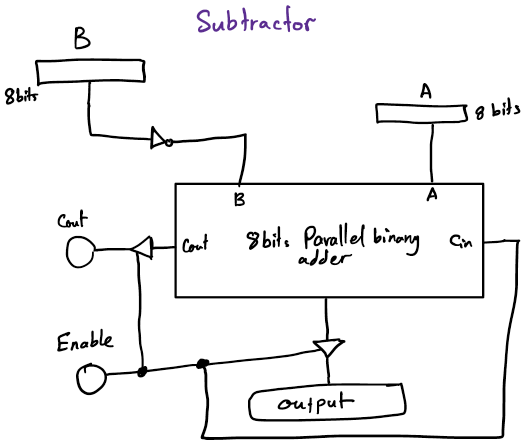 Subtractor
B
8bits
A
8 bits
B
A
Cout
Cout
8bits Parallel binany
adder
Cin
Enable
output